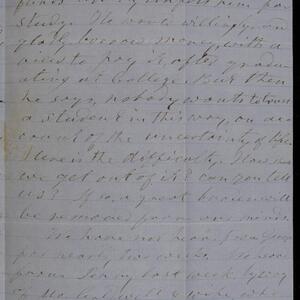 study. He would willingly, in
gladly borrow money, with a
view to pay it, after gradu
ating at College. But then
he says, nobody wants to trust
a student in this way, on ac
count of the uncertainty of life.
Here is the difficulty. How shall
we get out of it? Can you tell
us? If so, a great burden will
be removed from our minds.
We have not heard from George
for nearly two weeks. He wore
last week,